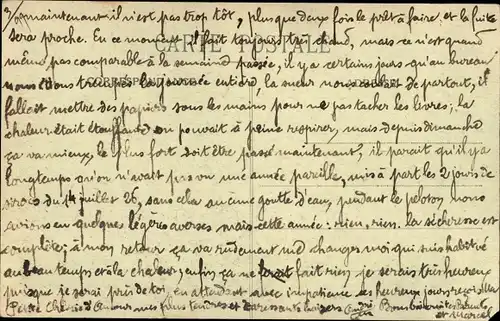 3/ maintenant il n'est pas trop tôt, plus que deux fois le prêt à faire, et la fuite
sera proche. En ce moment il fait toujours très chaud, mais ce n'est quand
CARTE POSTALE
même pas comparable à la semaine passée, il y a certains jours qu'au bureau
CORRESPONDANCE
nous étions trempés la journée entière, la sueur nous coulait de partout, il
fallait mettre des papiers sous les mains pour ne pas tacher les livres, la
chaleur était étouffante on pouvait à peine respirer, mais depuis dimanche
ça va mieux, le plus fort doit être passé maintenant, il paraît qu'il y a
longtemps qu'on n'avait pas vu une année pareille, mis à part les 2 jours de
siroco du 14 juillet 26, sans cela aucune goutte d'eau, pendant le peloton nous
avions eu quelques légères averses mais cette année: rien, rien. la sécheresse est
complète; à mon retour ça va rudement me changer moi qui suis habitué
au beau temps et à la chaleur, enfin ça ne fait rien, je serais très heureux
puisque je serai près de toi, en attendant avec impatience ces heureux jours reçois ma
Petite Chérie d'Amour mes plus tendres et caressants baisers André
Bons baisers aux Parents
et Marcel